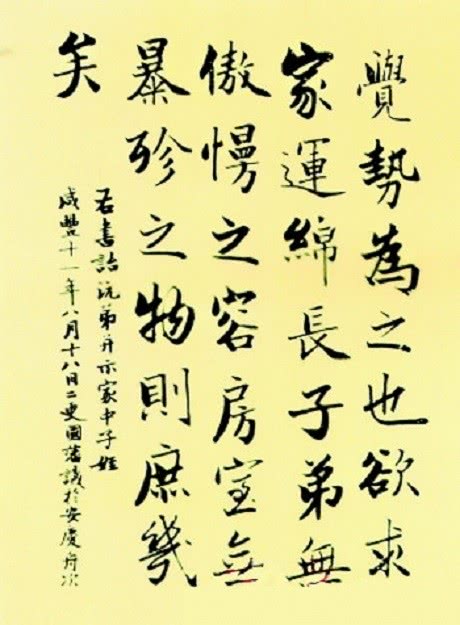 覺勢為之也欲求
家運綿長子弟無
傲慢之容房室無
暴殄之物則庶幾
矣
右書詒沅弟并示家中子姪
咸豐十一年八月十八日二更國藩識於安慶舟次